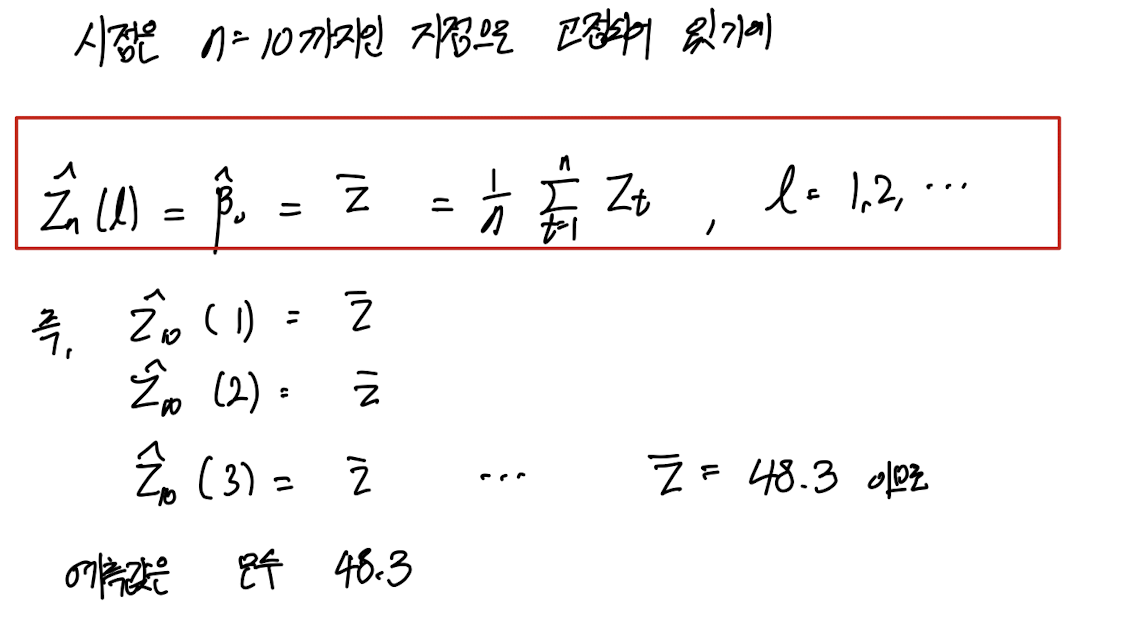 시점은 n=10까지인 지점으로 고정되어 있기에
Ẑn(l) = β̂₀ = z̄ = 1/n Σ(t=1→n) Zt , l = 1,2, ⋯
즉, Ẑ10 (1) = z̄
Ẑ10 (2) = z̄
Ẑ10 (3) = z̄ ⋯ z̄ = 48.3 이므로
예측값은 모두 48.3